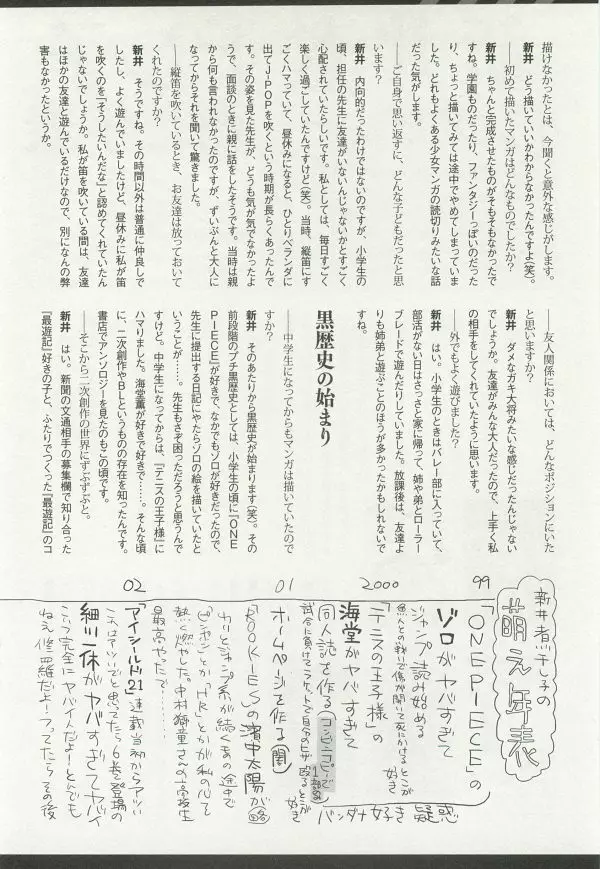 描けなかったとは、今聞くと意外な感じがします。
新井　どう描いていいかわからなかったんですよ(笑)。
――初めて描いたマンガはどんなものでしたか?
新井　ちゃんと完成させたものがそもそもなかったで
すね。学園ものだったり、ファンタジーっぽいのだった
り、ちょっと描いてみては途中でやめてしまっていま
した。どれもよくある少女マンガの読切りみたいな話
だった気がします。
――ご自身で思い返すに、どんな子どもだったと思
います?
新井　内向的だったわけではないのですが、小学生の
頃、担任の先生に友達がいないんじゃないかとすごく
心配されていたらしいです。私としては、毎日すごく
楽しく過ごしていたんですけど(笑)。当時、縦笛にす
ごくハマっていて、昼休みになると、ひとりベランダに
出てJ-POPを吹くという時期が長らくあったんで
す。その姿を見た先生が、どうも気が気でなかったよ
うで、面談のときに親に話をしたそうです。当時は親
から何も言われなかったのですが、ずいぶんと大人に
なってからそれを聞いて驚きました。
――縦笛を吹いているとき、お友達は放っておいて
くれたのですか?
新井　そうですね。その時間以外は普通に仲良しで
したし、よく遊んでいましたけど、昼休みに私が笛
を吹くのを「そうしたいんだな」と認めてくれていたん
じゃないでしょうか。私が笛を吹いている間は、友達
はほかの友達と遊んでいるだけなので、別になんの弊
害もなかったというか。
――友人関係においては、どんなポジションにいた
と思いますか?
新井　ダメなガキ大将みたいな感じだったんじゃない
でしょうか。友達がみんな大人だったので、上手く私
の相手をしてくれていたように思います。
――外でもよく遊びました?
新井　はい。小学生のときはバレー部に入っていて、
部活がない日はさっさと家に帰って、姉や弟とローラー
ブレードで遊んだりしていました。放課後は、友達よ
りも姉弟と遊ぶことのほうが多かったかもしれないで
すね。
黒歴史の始まり
――中学生になってからもマンガは描いていたので
すか?
新井　そのあたりから黒歴史が始まります(笑)。その
前段階のプチ黒歴史としては、小学生の頃に『ONE
PIECE』が好きで、なかでもゾロが好きだったので、
先生に提出する日記にやたらゾロの絵を描いていたと
いうことが……。先生もさぞ困っただろうと思うんで
すけど。中学生になってからは、『テニスの王子様』に
ハマりました。海堂薫が好きで好きで……。そんな頃
に、二次創作やBLというものの存在を知ったんです。
書店でアンソロジーを見たのもこの頃です。
――そこから二次創作の世界にずぶずぶと。
新井　はい。新聞の文通相手の募集欄で知り合った
『最遊記』好きの子と、ふたりでつくった『最遊記』のコ
新井煮干し子の
萌え年表
99
『ONE PIECE』の
ゾロがヤバすぎて
ジャンプ読み始める
魚人との戦いで傷が開いて死にかけるところが
好き
2000
『テニスの王子様』の
海堂がヤバすぎて
同人誌を作る(コンビニコピーで
1部のみ
試合に負けてラケットで自分のヒザ殴るところが
好き
バンダナ好き疑惑
01
ホームページを作る(閉)
『ROOKIES』の濱中太陽が(略)
わりとジャンプ系が続くあの途中で
ピンポンとか『H.R』とかが私の心を
熱く燃やした。中村獅童さんの高校生
最高やった…
02
『アイシールド21』連載当初からアツい
これはアツいぞと思ってたら6巻で登場の
細川一休がヤバすぎてヤバイ
こいつ完全にヤバイんだよ!とんでも
ねえ修羅だよ!っつってたらその後